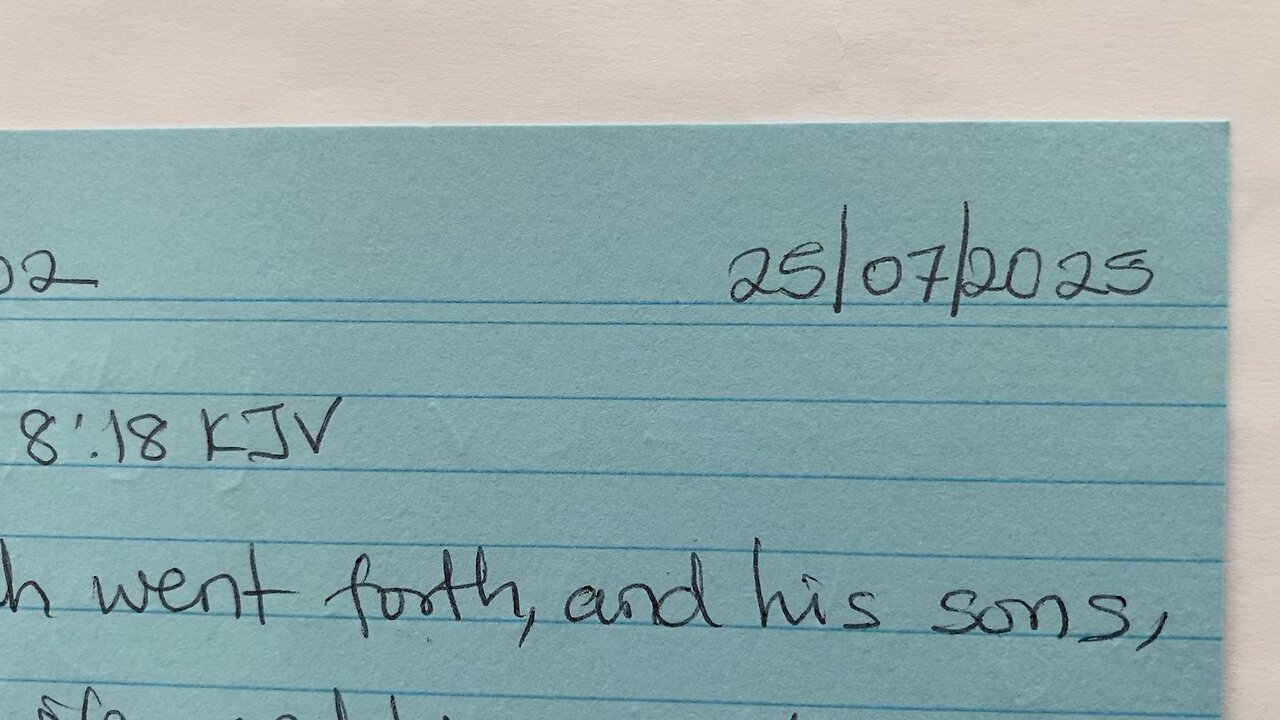 02 25/07/2025
8:18 KJV
h went forth, and his sons,